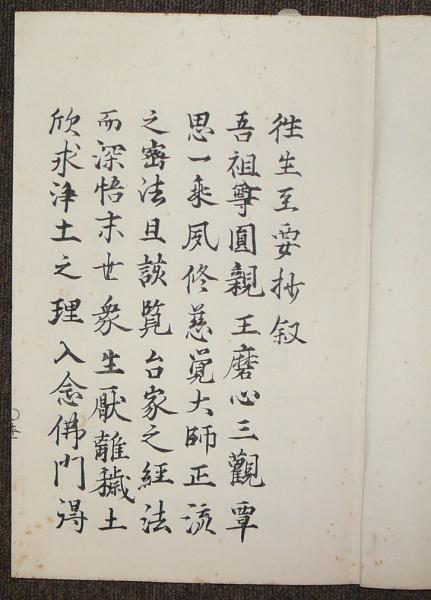 往生至要抄叙
吾祖尊圓親王磨心三觀覃
思一乘夙修慈覺大師正流
之密法且談覽台家之經法
而深悟末世衆生厭離穢土
欣求淨土之理入念佛門得